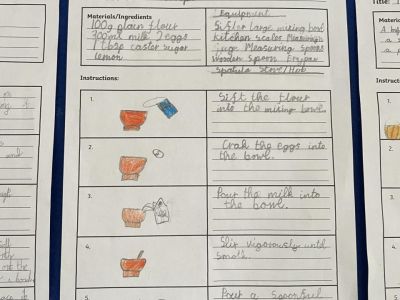 Materials/Ingredients
100g plain flour
300ml milk 2 eggs
1 tbsp caster sugar
lemon
Equipment
Sifter large mixing bowl
Kitchen scales Measuring
jug Measuring spoons
Wooden spoon Frypan
Spatula Stove/Hob
Instructions:
1.
Sift the flour
into the mixing bowl.
2.
Crak the eggs into
the bowl.
3.
Pour the milk into
the bowl.
4.
Stir vigorously until
smoth.
5.
Pour a spoonful
Title:
Materials
Instruct
1.
2.
3.
4.